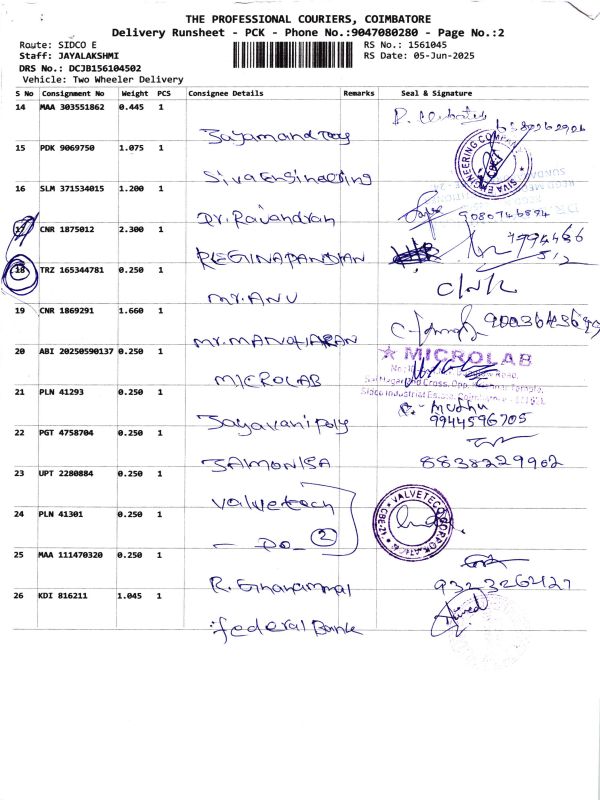 THE PROFESSIONAL COURIERS, COIMBATORE
Delivery Runsheet - PCK - Phone No.:9047080280 - Page No.:2
Route: SIDCO E
RS No.: 1561045
Staff: JAYALAKSHMI
RS Date: 05-Jun-2025
DRS No.: DCJB156104502
Vehicle: Two Wheeler Delivery
S No Consignment No Weight PCS Consignee Details Remarks Seal & Signature
14 MAA 303551862 0.445 1
15 PDK 9069750 1.075 1
SIVA ENGINEERING COMPANY
16 SLM 371534015 1.200 1
Siva Engineering
Dr. Ravandran 9080746894
17 CNR 1875012 2.300 1
REGINAPANDIAN
18 TRZ 165344781 0.250 1
Mr. ANU
19 CNR 1869291 1.660 1
Mr. MANOHARAN
20 ABI 20250590137 0.250 1
MICROLAB
MICROLAB
21 PLN 41293 0.250 1
Muthu
9944596705
Jayavani poly
22 PGT 4758704 0.250 1
JAMONISA 8838229902
23 UPT 2280884 0.250 1
Valvetech
24 PLN 41301 0.250 1
- DO - 2
25 MAA 111470320 0.250 1
R. Gnanammal
26 KDI 816211 1.045 1
federal Bank